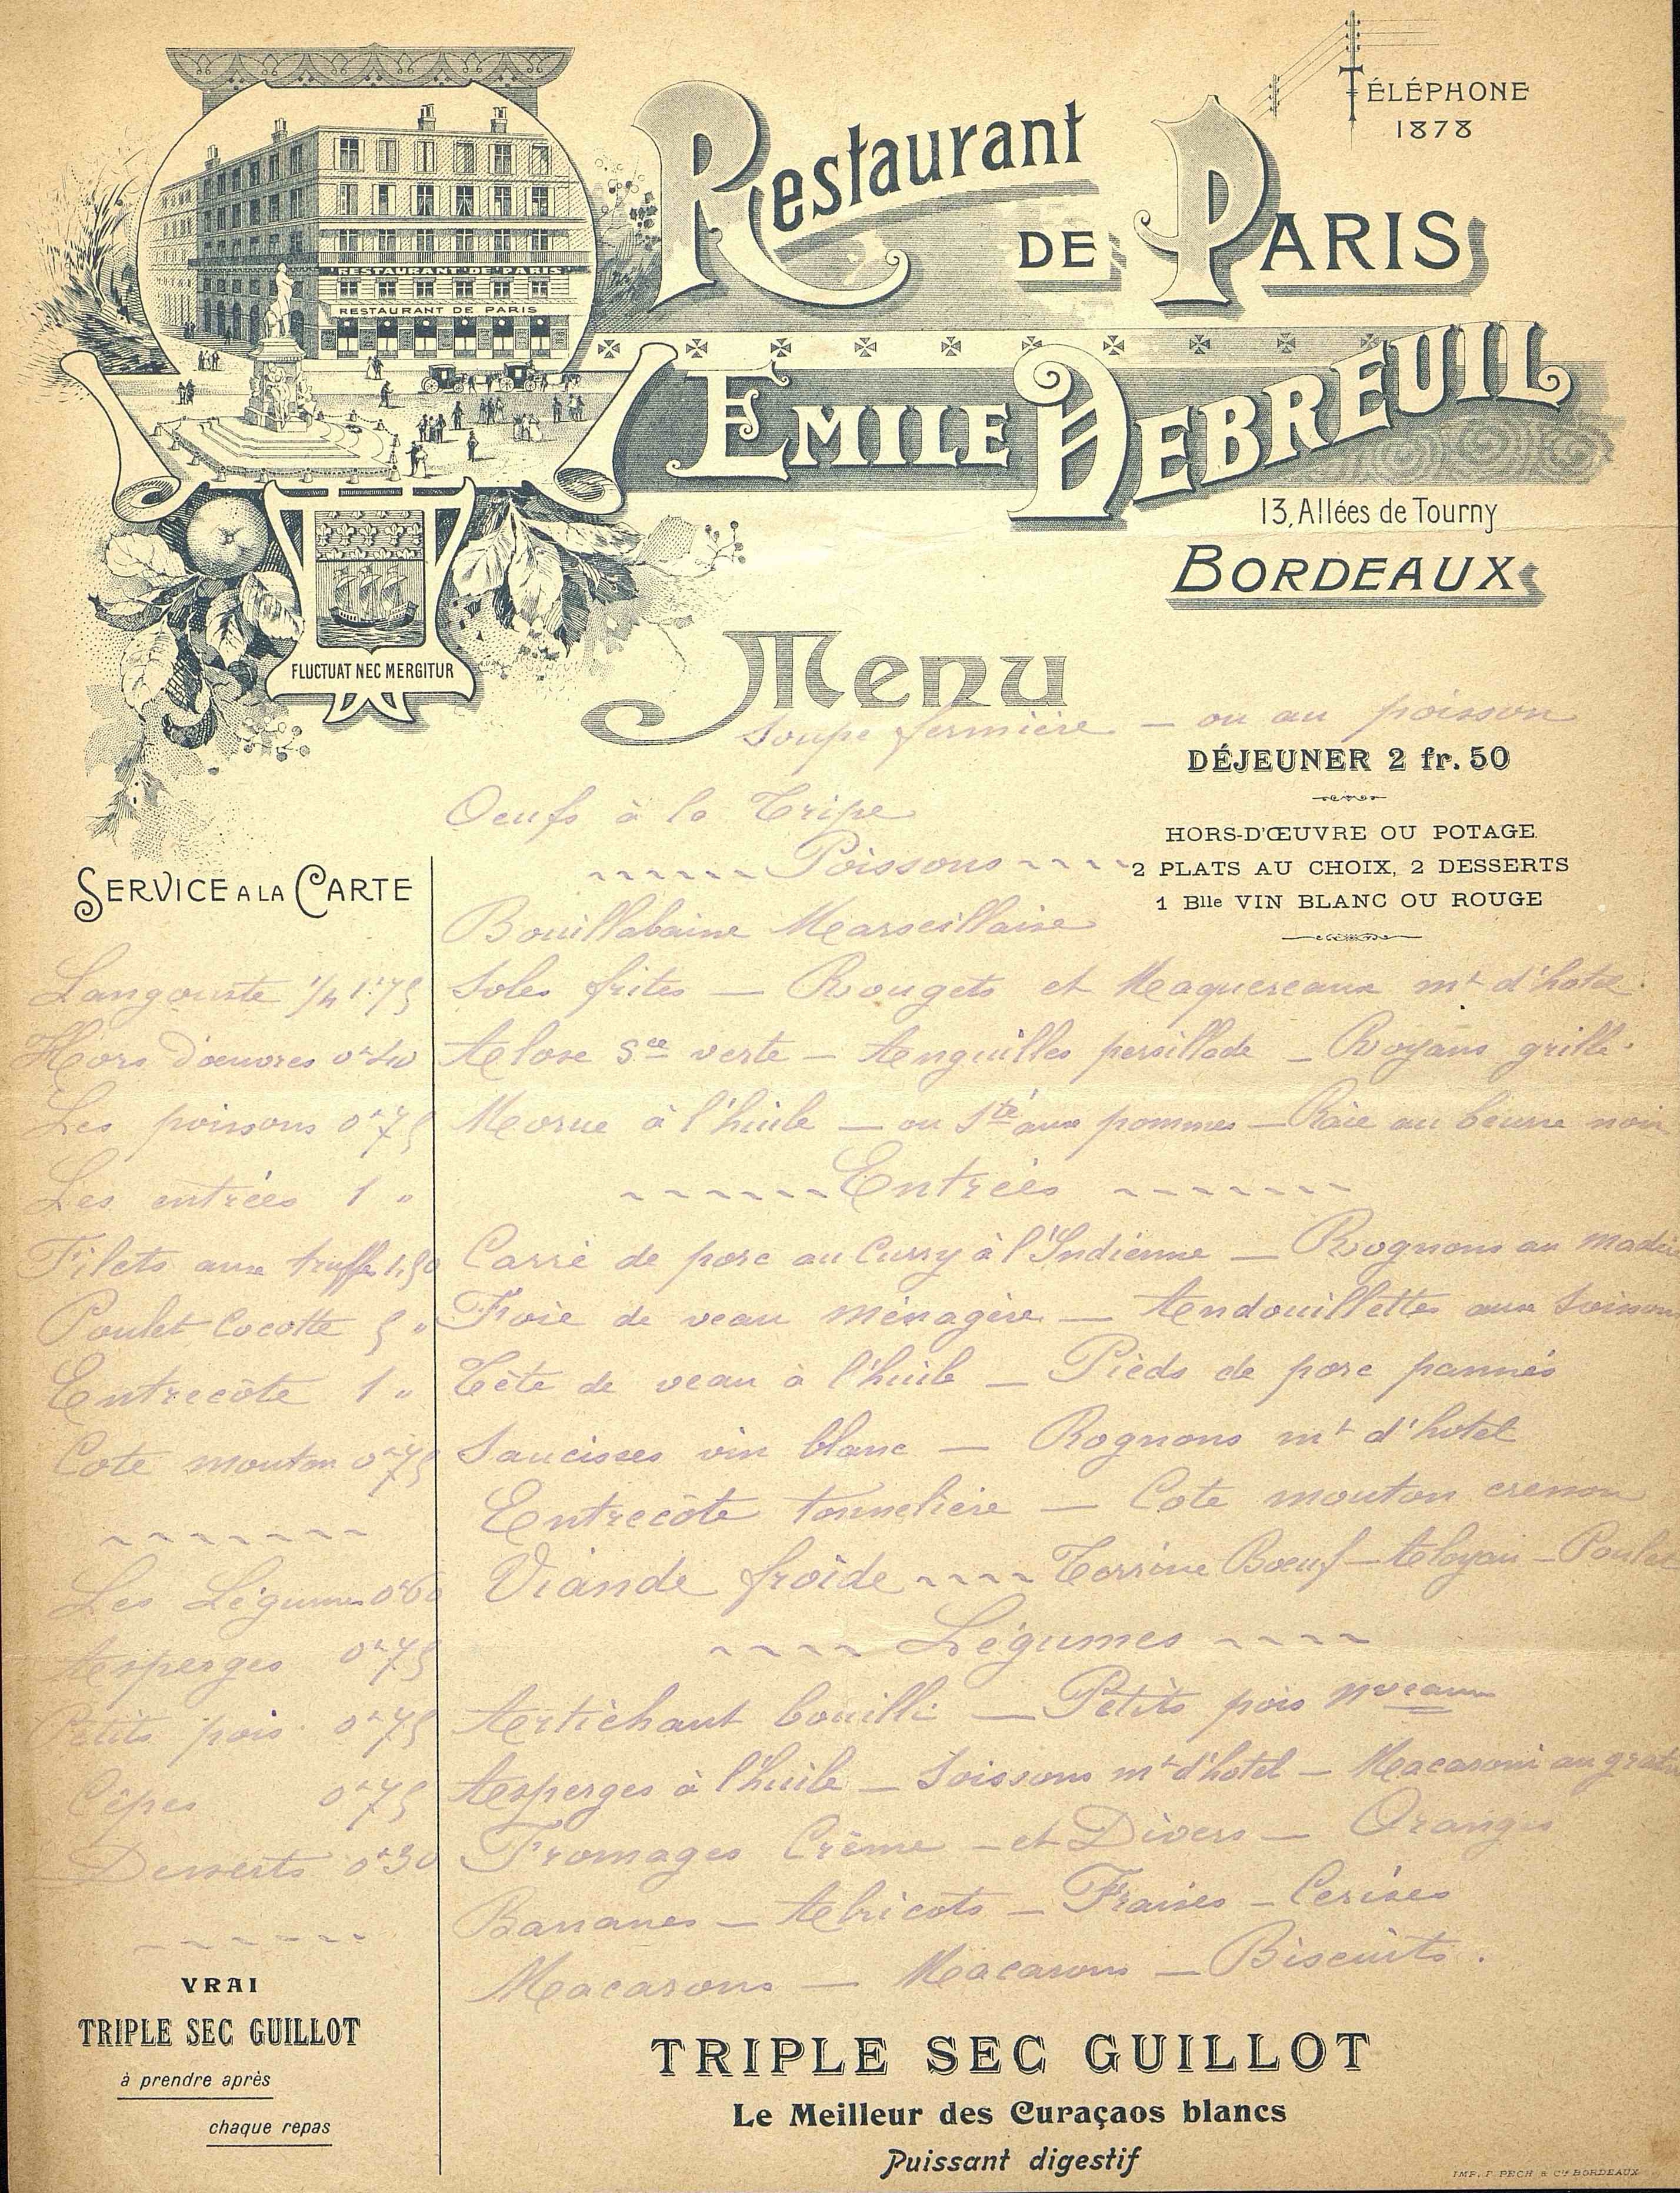 TÉLÉPHONE
1878
Restaurant
DE PARIS
RESTAURANT DE PARIS
RESTAURANT DE PARIS
EMILE DEBREUIL
13, Allées de Tourny
BORDEAUX
FLUCTUAT NEC MERGITUR
Menu
Soupe fermière — ou au poisson
DÉJEUNER 2 fr. 50
HORS-D'ŒUVRE OU POTAGE
2 PLATS AU CHOIX, 2 DESSERTS
1 Blle VIN BLANC OU ROUGE
Oeufs à la Tripe
Poissons
Bouillabaisse Marseillaise
Soles frites — Rougets et Maquereaux mt d'hotel
Alose sce verte — Anguilles persillade — Royans grillé
Morue à l'huile — ou sté aux pommes — Raie au beurre noir
Entrées
Carré de porc au Curry à l'Indienne — Rognons au madè
Foie de veau ménagère — Andouillettes aux Soisson
Tête de veau à l'huile — Pieds de porc pannés
Saucisses vin blanc — Rognons mt d'hotel
Entrecôte tonnelière — Cote mouton cresson
Viande froide Terrine Bœuf — Aloyau — Poulet
Légumes
Artichaut bouilli — Petits pois nveaux
Asperges à l'huile — Soissons mt d'hotel — Macaroni au gratin
Fromages Crème — et Divers — Oranges
Bananes — Abricots — Fraises — Cerises
Macarons — Macarons — Biscuits.
SERVICE A LA CARTE
Langouste 1/4 1f75
Hors d'oeuvres 0f40
Les poissons 0f75
Les entrées 1 "
Filets aux truffes 1,50
Poulet Cocotte 5 "
Entrecôte 1 "
Cote mouton 0f75
Les Légumes 0f60
Asperges 0f75
Petits pois 0f75
Cêpes 0f75
Desserts 0f30
VRAI
TRIPLE SEC GUILLOT
à prendre après
chaque repas
TRIPLE SEC GUILLOT
Le Meilleur des Curaçaos blancs
Puissant digestif
IMP. F. PECH & Cie BORDEAUX